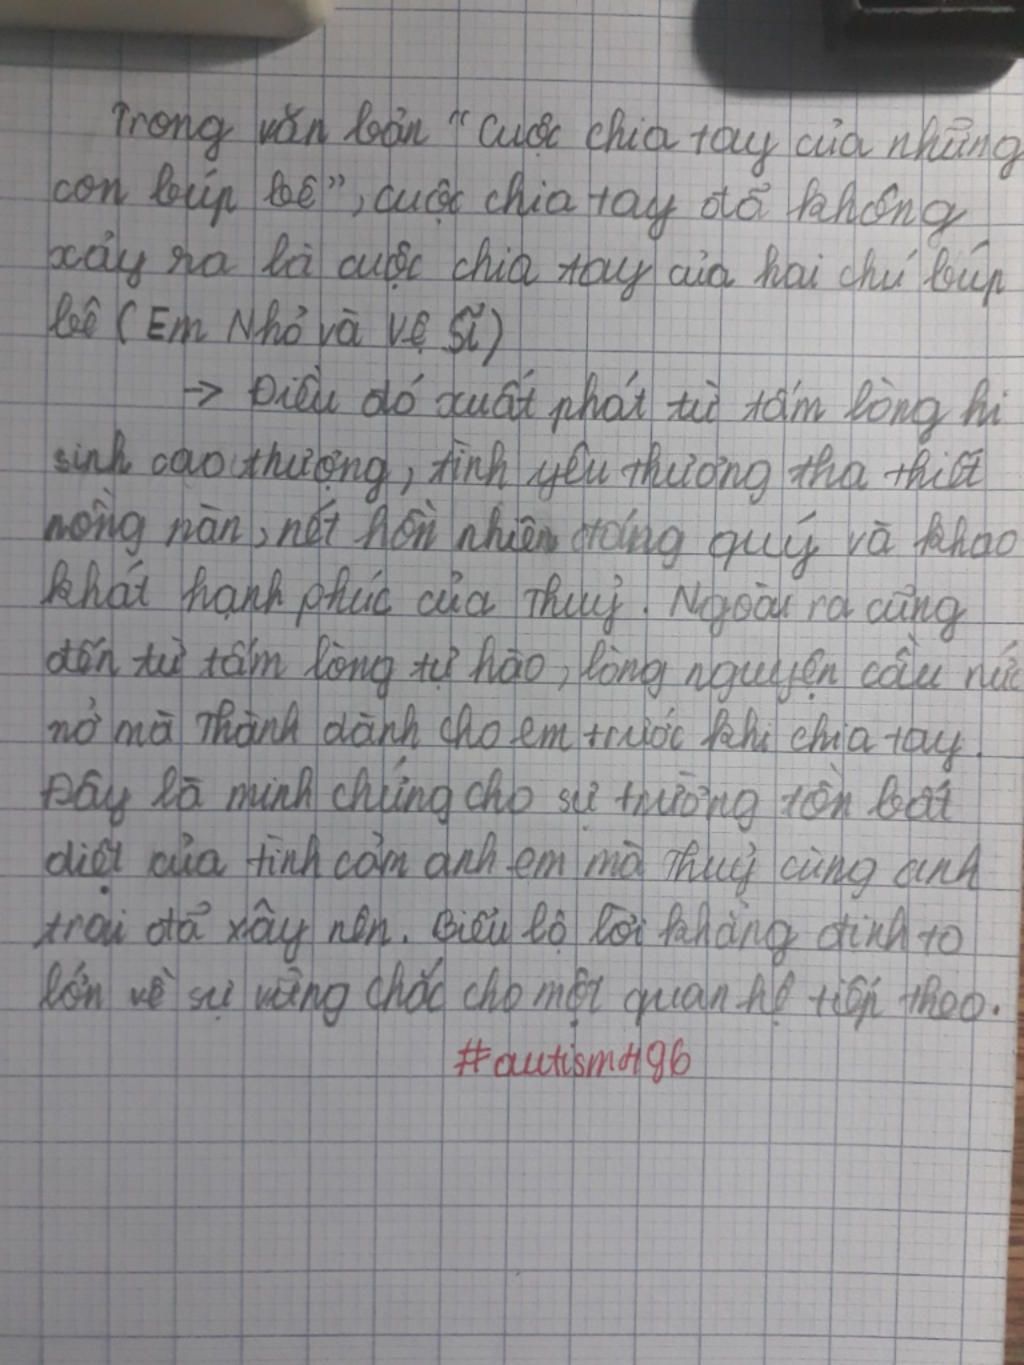 Trong văn bản "Cuộc chia tay của những
con búp bê", cuộc chia tay đã không
xảy ra là cuộc chia tay của hai chú búp
bê (Em Nhỏ và Vệ Sĩ)
-> Điều đó xuất phát từ tấm lòng hi
sinh cao thượng, tình yêu thương tha thiết
nồng nàn, nét hồn nhiên đáng quý và khao
khát hạnh phúc của Thuỷ. Ngoài ra cũng
đến từ tấm lòng tự hào, lòng nguyện cầu nức
nở mà Thành dành cho em trước khi chia tay.
Đây là minh chứng cho sự trường tồn bất
diệt của tình cảm anh em mà Thuỷ cùng anh
trai đã xây nên. Biểu lộ lời khẳng định to
lớn về sự vững chắc cho một quan hệ tiếp theo.